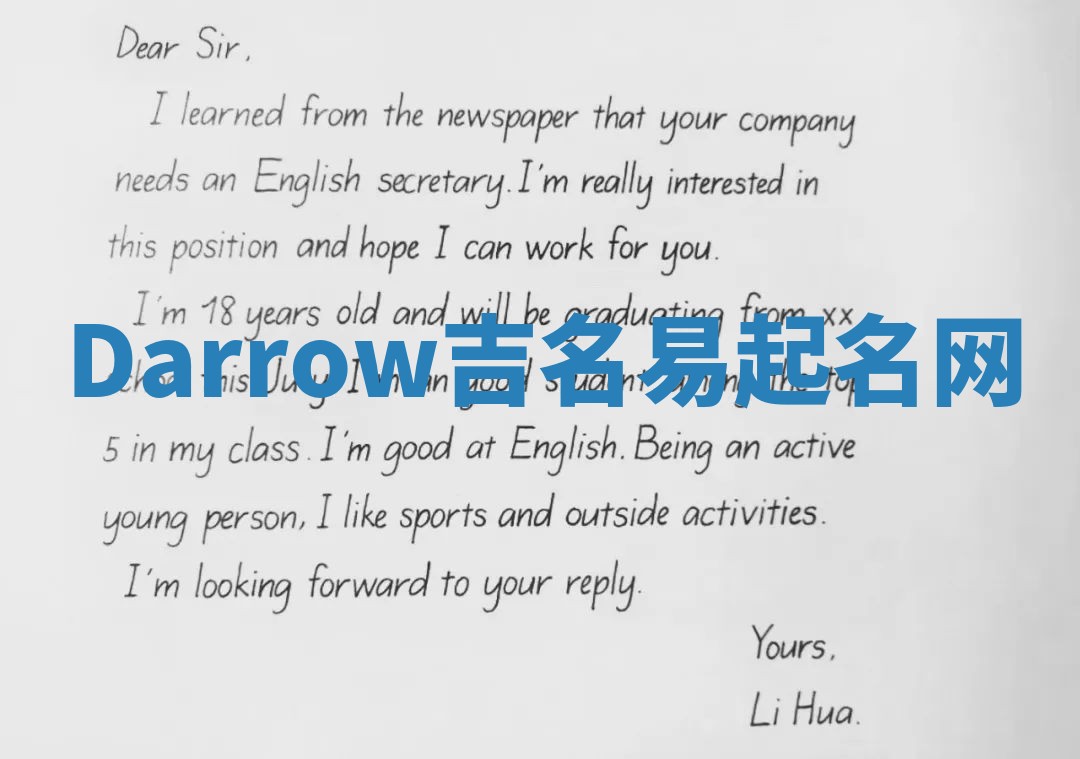 Dear Sir,
I learned from the newspaper that your company
needs an English secretary. I'm really interested in
this position and hope I can work for you.
I'm 18 years old and will be graduating from xx
Darrow吉名易起名网
this July. I'm an good student among the top
5 in my class. I'm good at English. Being an active
young person, I like sports and outside activities.
I'm looking forward to your reply.
Yours,
Li Hua.